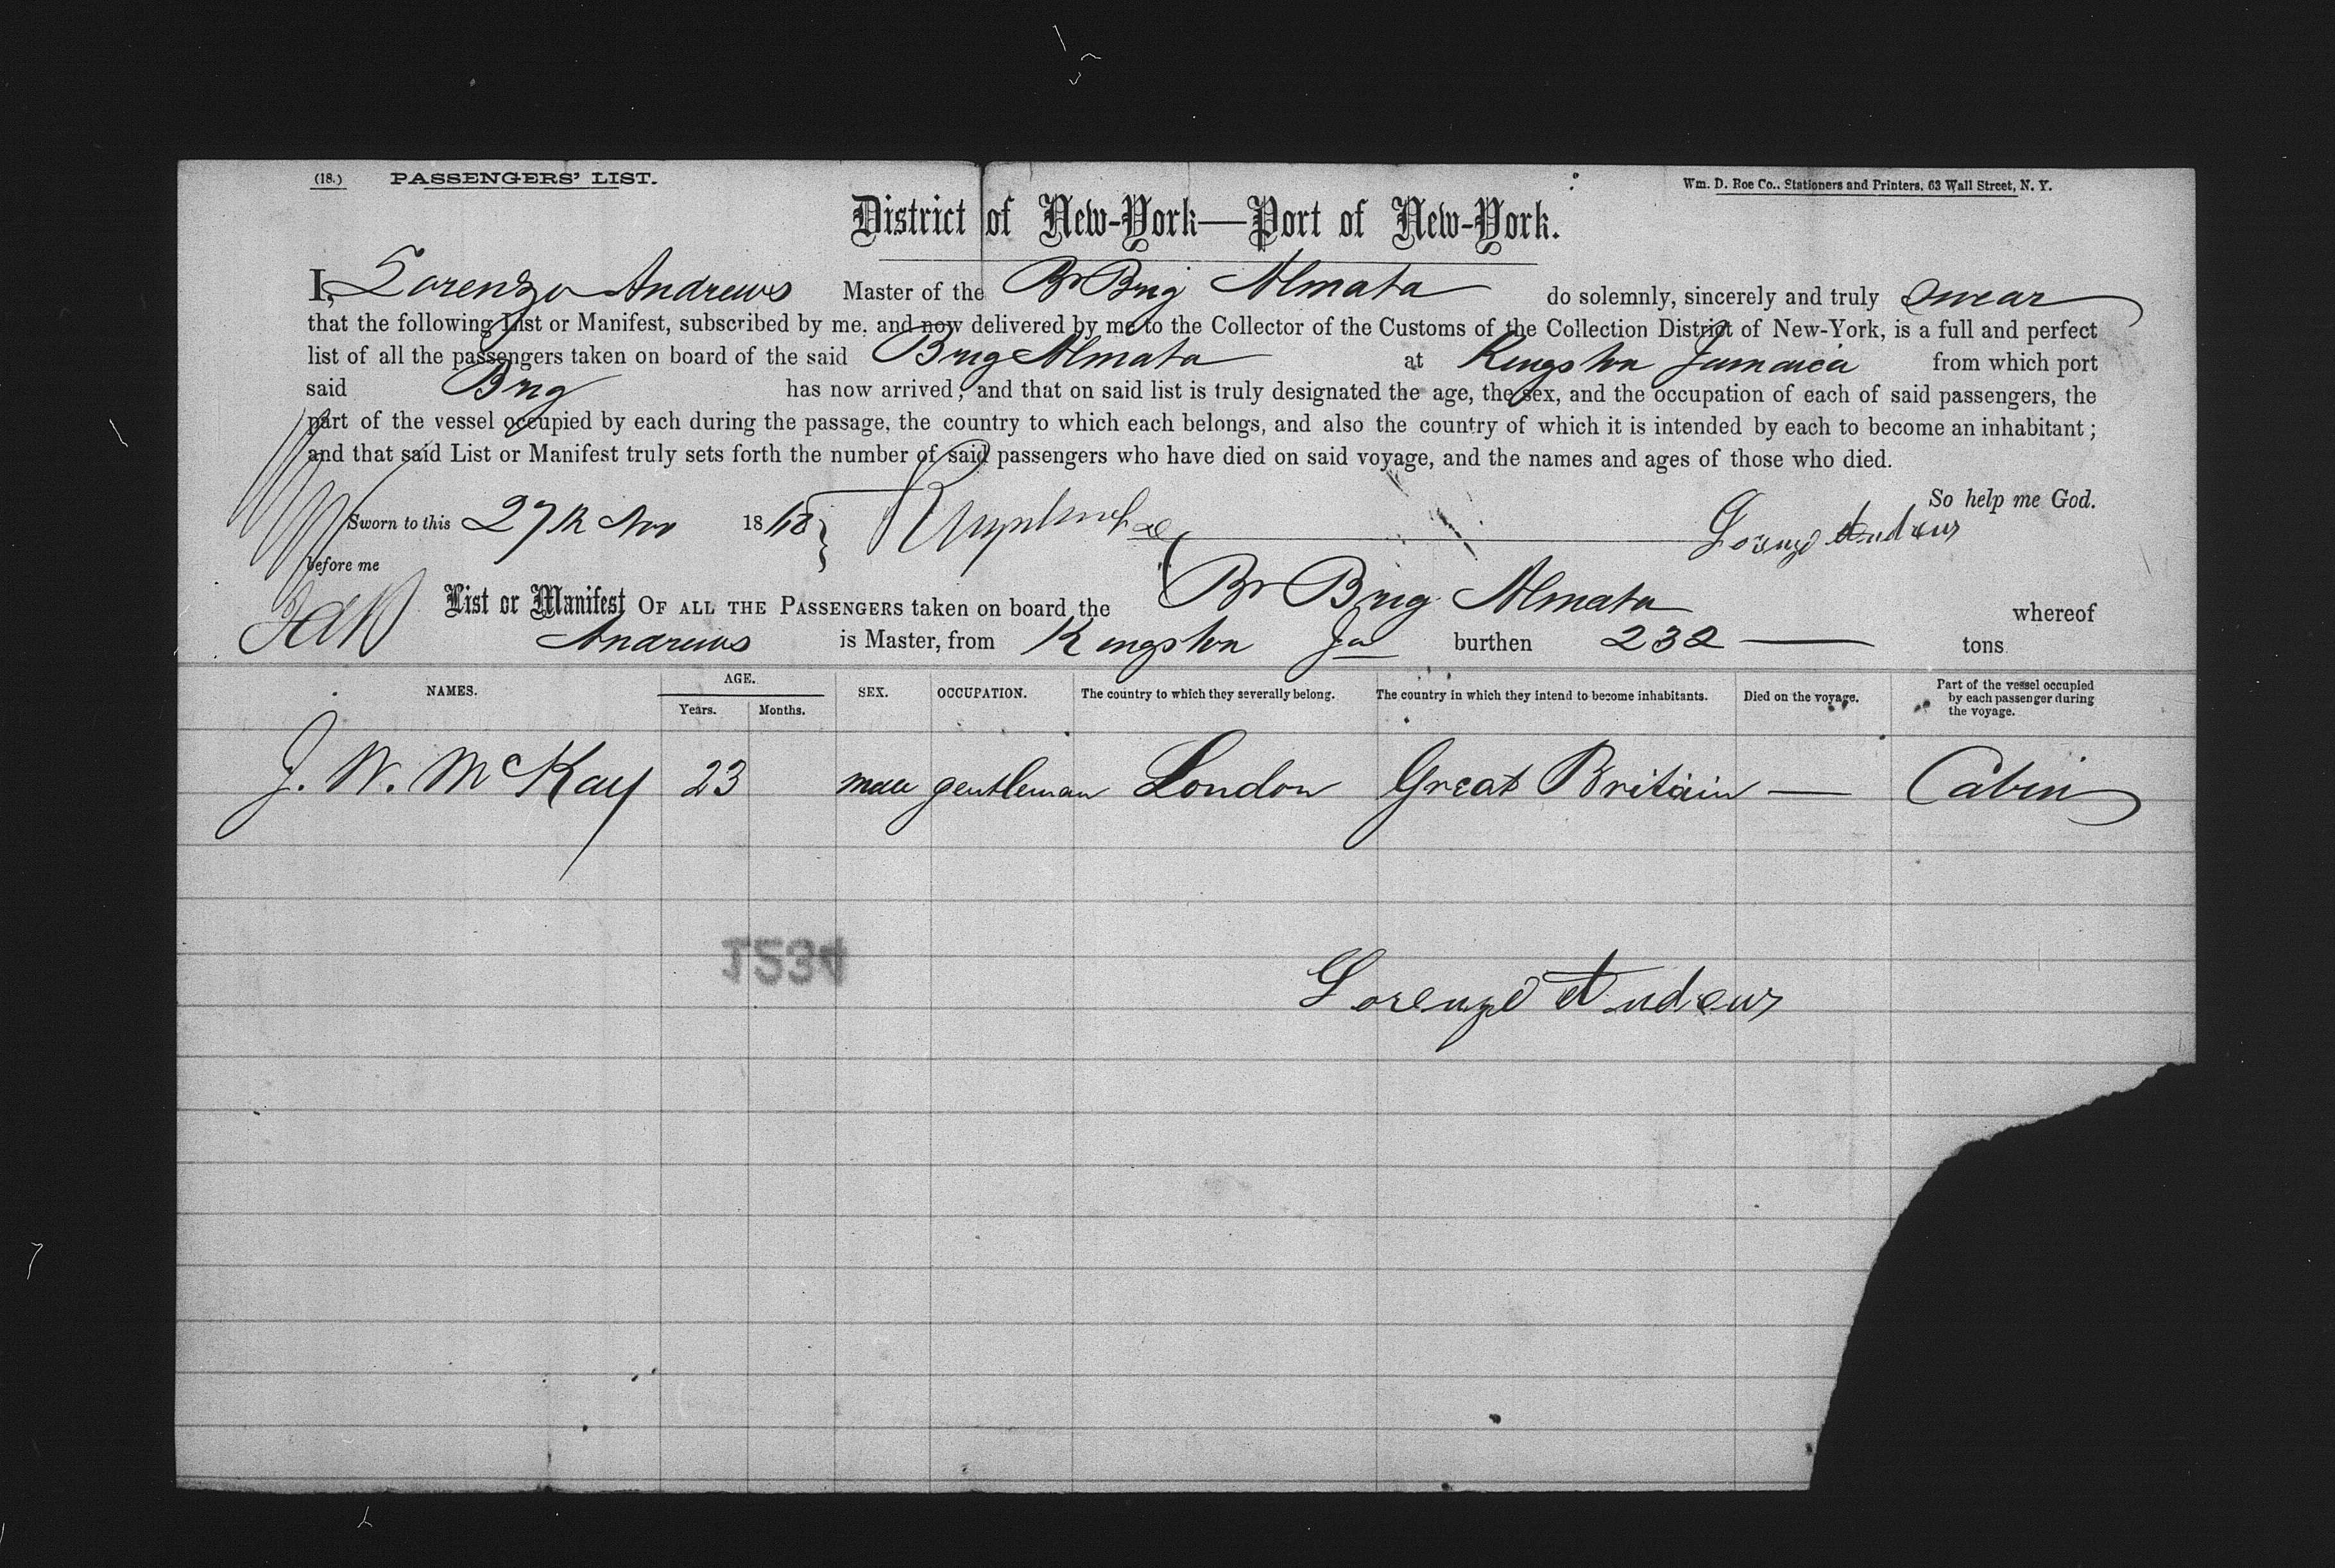 (18.) PASSENGERS' LIST. Wm. D. Roe Co., Stationers and Printers, 63 Wall Street, N. Y.
District of New-York—Port of New-York.
I, Lorenzo Andrews Master of the Br Brig Almata do solemnly, sincerely and truly swear
that the following List or Manifest, subscribed by me, and now delivered by me to the Collector of the Customs of the Collection District of New-York, is a full and perfect
list of all the passengers taken on board of the said Brig Almata at Kingston Jamaica from which port
said Brig has now arrived; and that on said list is truly designated the age, the sex, and the occupation of each of said passengers, the
part of the vessel occupied by each during the passage, the country to which each belongs, and also the country of which it is intended by each to become an inhabitant;
and that said List or Manifest truly sets forth the number of said passengers who have died on said voyage, and the names and ages of those who died.
So help me God.
Sworn to this 27th Nov 18 Lorenzo Andrews
before me
List or Manifest OF ALL THE PASSENGERS taken on board the Br Brig Almata whereof
Andrews is Master, from Kingston Ja burthen 232 — tons
NAMES. AGE. SEX. OCCUPATION. The country to which they severally belong. The country in which they intend to become inhabitants. Died on the voyage. Part of the vessel occupied by each passenger during the voyage.
Years. Months.
J. W. McKay 23 male gentleman London Great Britain — Cabin
1534
Lorenzo Andrews